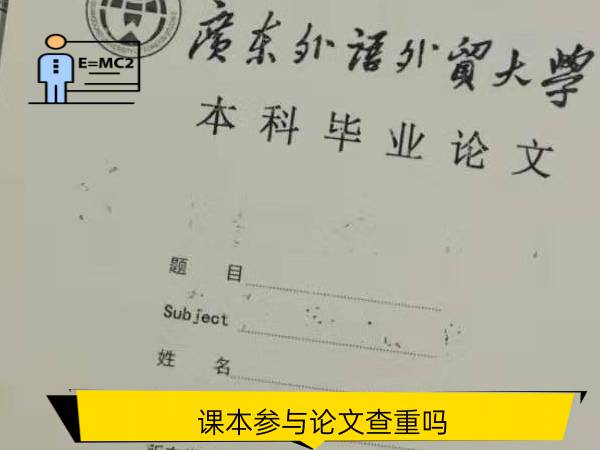 廣东外语外貿大學
E=MC2
本科毕业论文
题 目
Subject
姓 名
课本参与论文查重吗